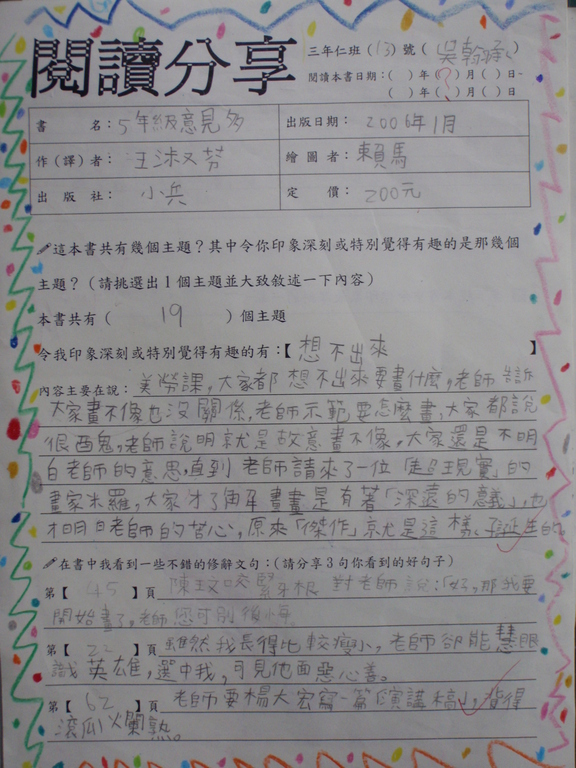 閱讀分享
三年仁班(13)號(吳翰承)
閱讀本書日期:( )年(?)月( )日~
( )年( )月( )日
書 名:5年級意見多
出版日期:2006年1月
作(譯)者:王淑芬
繪圖者:賴馬
出版社:小兵
定 價:200元
這本書共有幾個主題?其中令你印象深刻或特別覺得有趣的是那幾個
主題?(請挑選出1個主題並大致敘述一下內容)
本書共有( 19 )個主題
令我印象深刻或特別覺得有趣的有:【想不出來】
內容主要在說:美勞課,大家都想不出來要畫什麼,老師告訴
大家畫不像也沒關係,老師示範要怎麼畫,大家都說
很酒鬼,老師說明就是故意畫不像,大家還是不明
白老師的意思,直到老師請來了一位「超現實」的
畫家米羅,大家才了解畫畫是有著「深遠的意義」,也
才明白老師的苦心,原來「傑作」就是這樣誕生的。
在書中我看到一些不錯的修辭文句:(請分享3句你看到的好句子)
第【 45 】頁 陳玟咬緊牙根對老師說:「好,那我要
開始畫了,老師您可別後悔
第【 22 】頁 雖然我長得比較瘦小,老師卻能慧眼
識英雄,選中我,可見他面惡心善。
第【 62 】頁 老師要楊大宏寫一篇「演講稿」,背得
滾瓜爛熟。